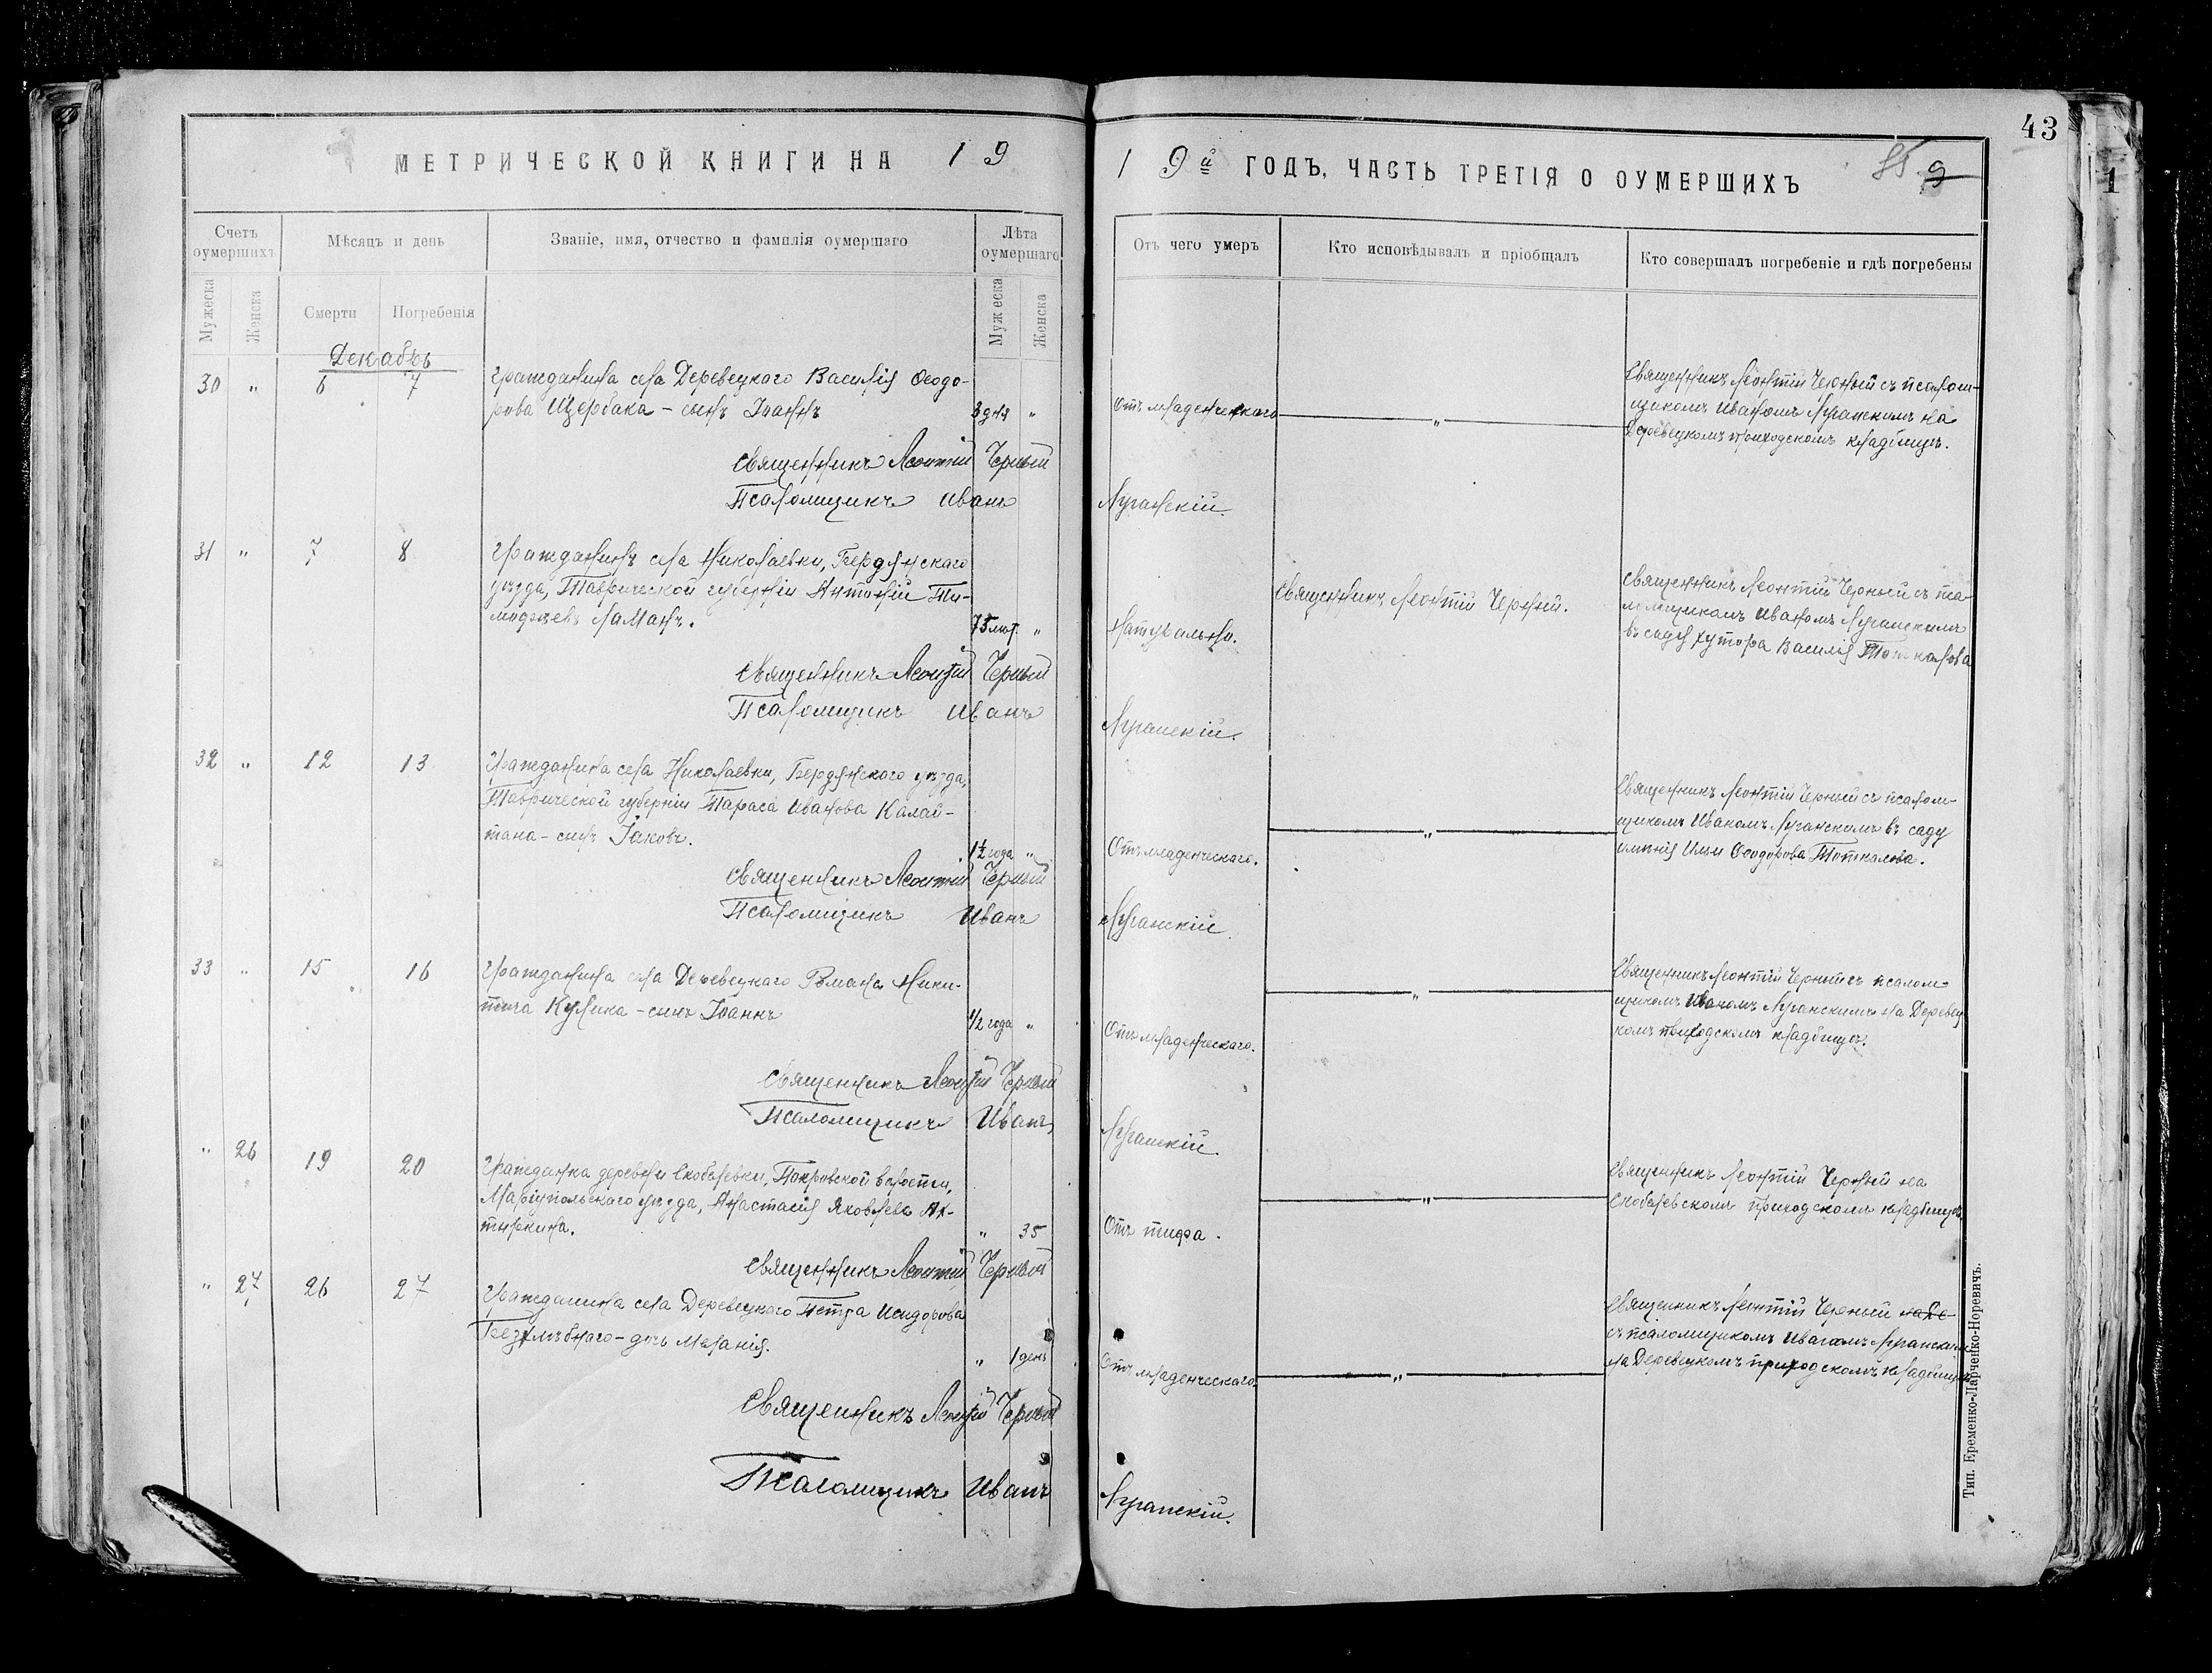 43
МЕТРИЧЕСКОЙ КНИГИ НА 1 9
1 9й ГОДЪ, ЧАСТЬ ТРЕТІЯ О ОУМЕРШИХЪ
85 9
1
Счетъ оумершихъ
Мѣсяцъ и день
Званіе, имя, отчество и фамилія оумершаго
Лѣта оумершаго
Отъ чего умеръ
Кто исповѣдывалъ и пріобщалъ
Кто совершалъ погребеніе и гдѣ погребены
Мужеска
Женска
Смерти
Погребенія
Муж еска
Женска
Декабрь
30 " 6 7
Гражданина села Деревецкаго Василія Ѳеодо-
рова Щербака - сынъ Іоаннъ
3 дня "
Отъ младенческаго
"
Священникъ Леонтій Черный съ псалом-
щикомъ Иваномъ Луганскимъ на
Деревецкомъ приходскомъ кладбищѣ.
Священникъ Леонтій Черный
Псаломщикъ Иванъ
Луганскій.
31 " 7 8
Гражданинъ села Николаевки, Бердянскаго
уѣзда, Таврической губерніи Антоній Ти-
мофеевъ Ламанъ.
75 лѣт. "
Натурально.
Священникъ Леонтій Черный.
Священникъ Леонтій Черный съ пса
ломщикомъ Иваномъ Луганскимъ
въ саду хутора Василія
Священникъ Леонтій Черный
Псаломщикъ Иванъ
Луганскій.
32 " 12 13
Гражданина села Николаевки, Бердянского уѣзда,
Таврической губерніи Тараса Иванова Калай-
тана - сынъ Іаковъ.
1½ года "
Отъ младенческаго.
"
Священникъ Леонтій Черный съ псалом-
щикомъ Иваномъ Луганскимъ въ саду
имѣнія Ильи Ѳеодорова
Священникъ Леонтій Черный
Псаломщикъ Иванъ
Луганскій
33 " 15 16
Гражданина села Деревецкаго Романа Ники-
тина Кулика - сынъ Іоаннъ
½ года "
Отъ младенческаго.
"
Священникъ Леонтій Черный съ псалом-
щикомъ Иваномъ Луганскимъ на Деревец
комъ приходскомъ кладбищѣ.
Священникъ Леонтій Черный
Псаломщикъ Иванъ
Луганскій.
" 26 19 20
Гражданка деревни Скобелевки, Покровской волости,
Маріупольскаго уѣзда, Анастасія Яковлева Ах-
тыркина.
" 35
Отъ тифа.
"
Священникъ Леонтій Черный на
Скобелевскомъ приходскомъ кладбищѣ.
Священникъ Леонтій Черный
" 27 26 27
Гражданина села Деревецкаго Петра Исидорова
Безхлѣбнаго - дочь Меланія.
" 1 день
Отъ младенческаго.
"
Священникъ Леонтій Черный на Де-
съ псаломщикомъ Иваномъ Луганским
на Деревецкомъ приходскомъ кладбищѣ
Священникъ Леонтій Черный
Псаломщикъ Иванъ
Луганскій.
Тип. Еременко-Ларченко-Норевичъ.